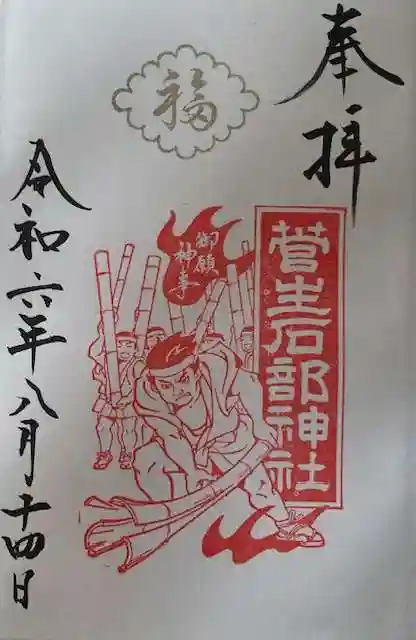 奉拝
福
御願
神事
菅生石部神社
令和六年八月十四日